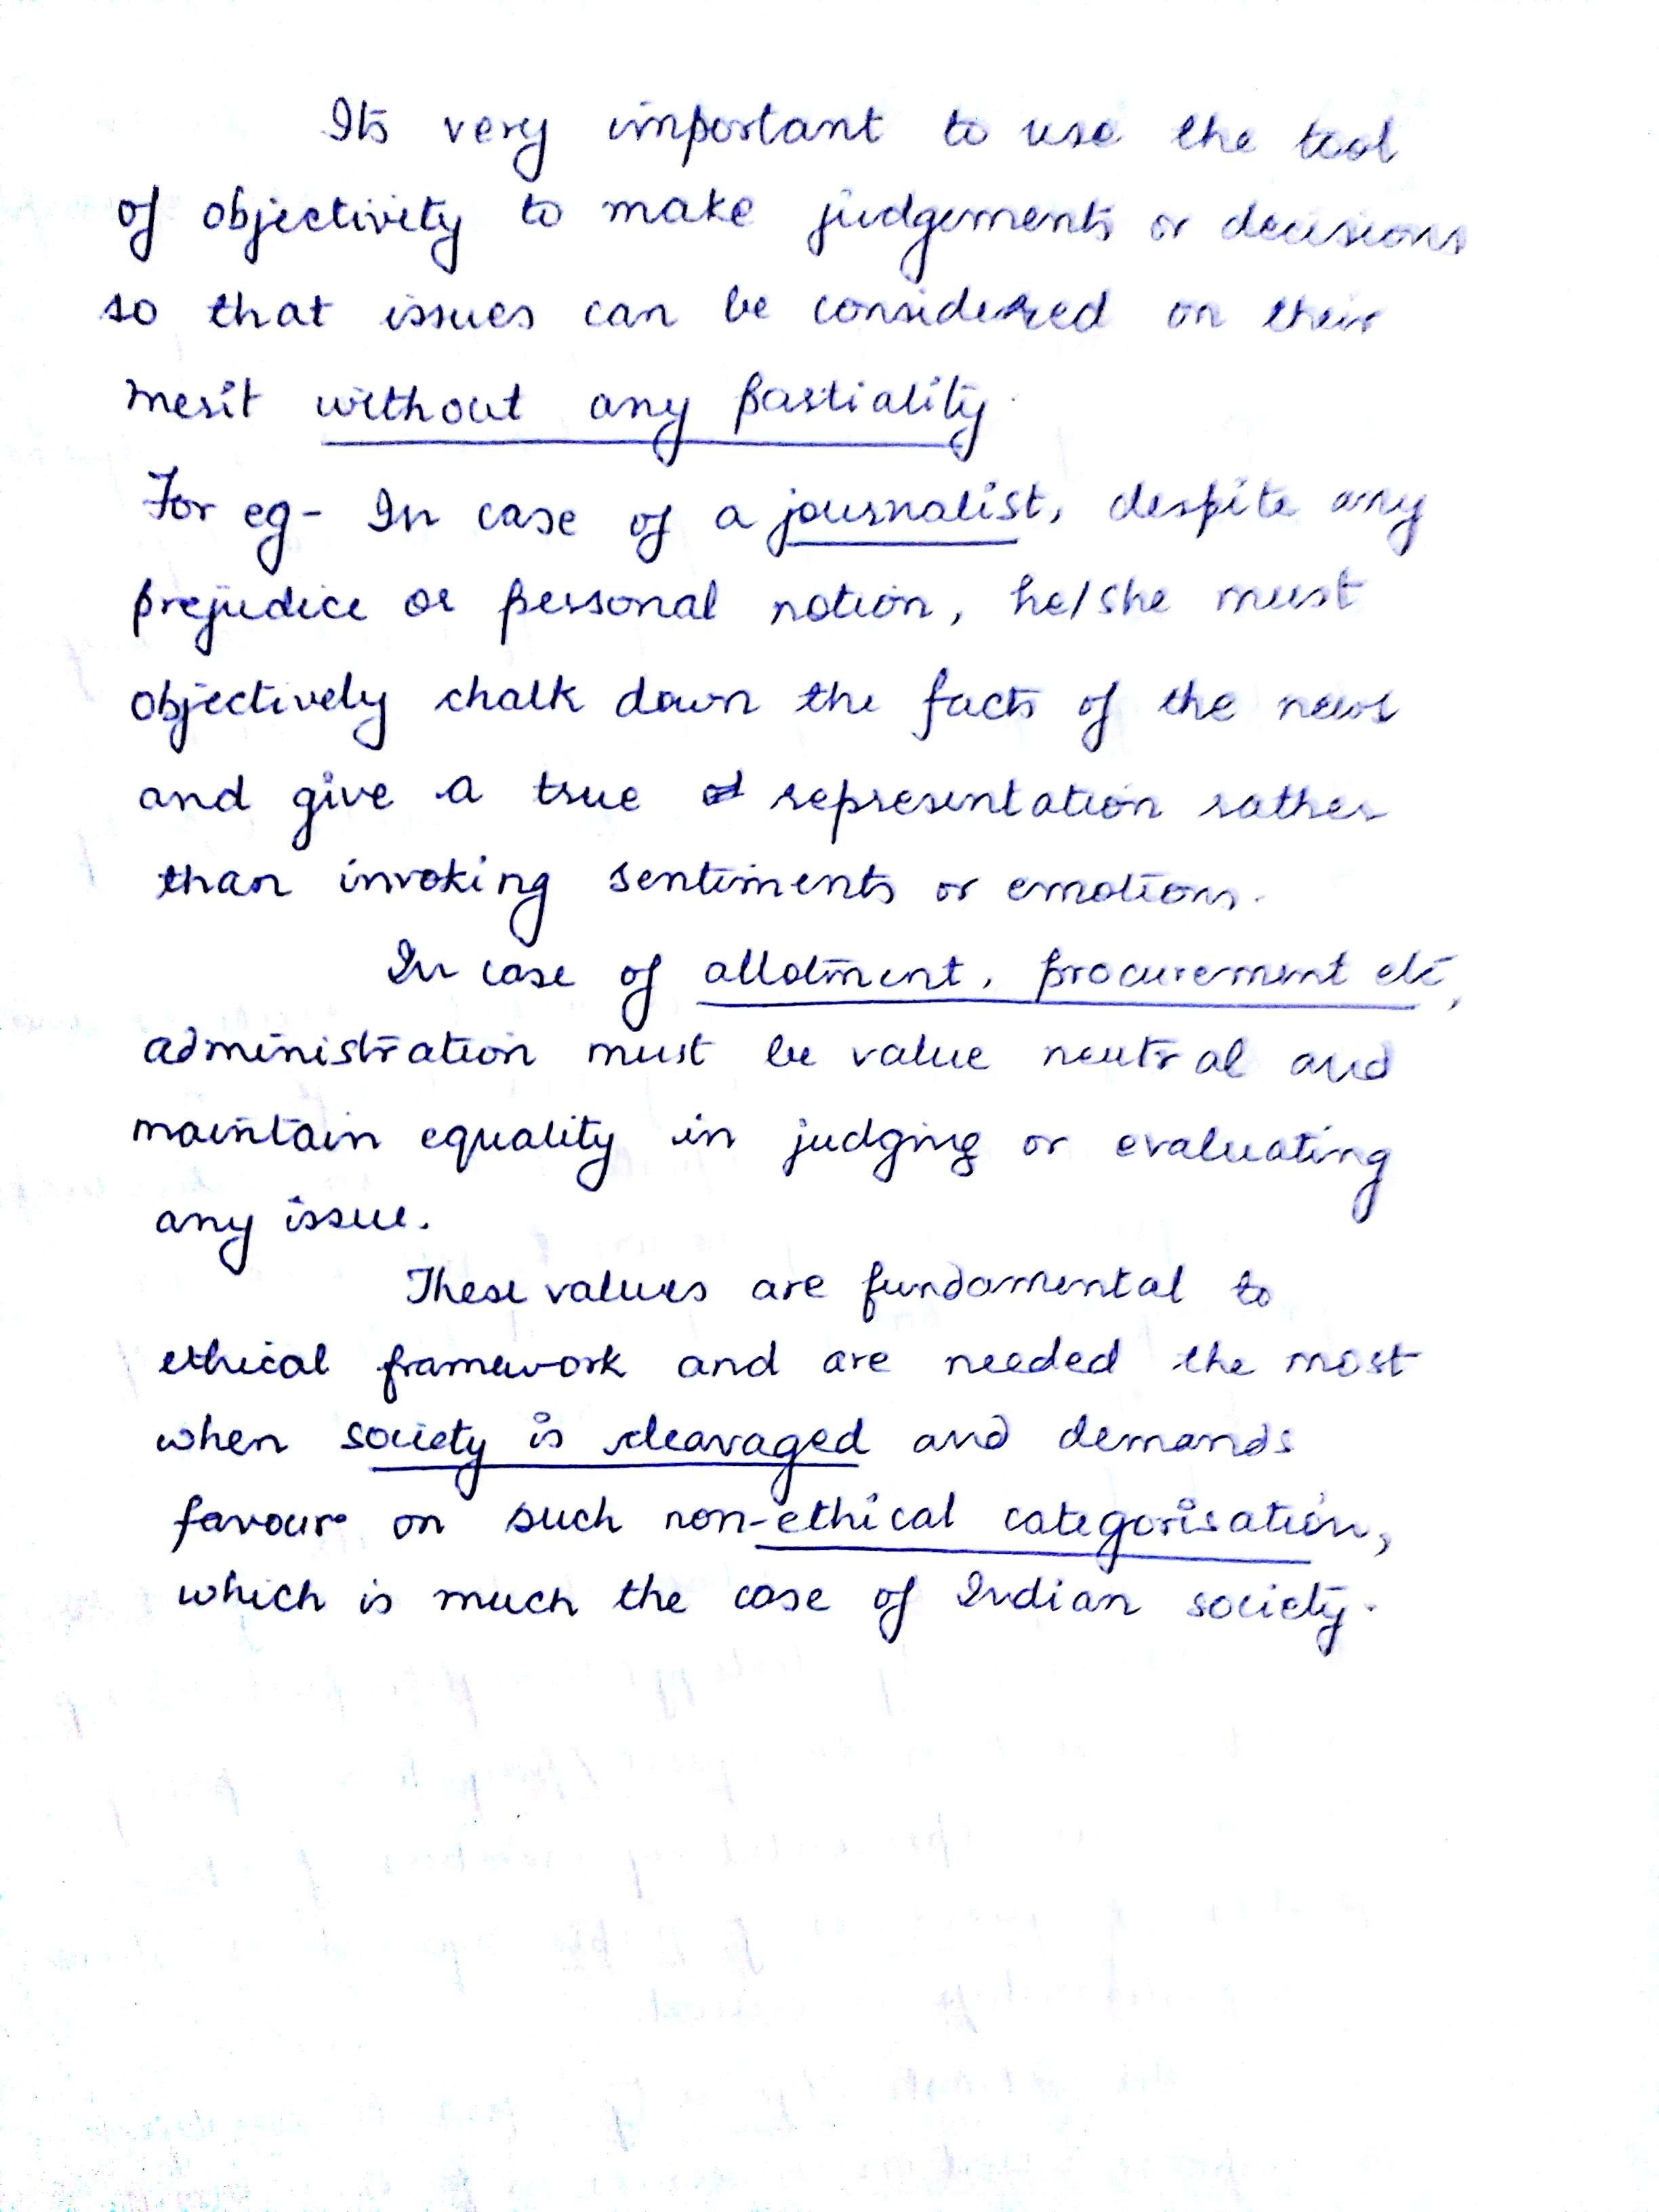 Its very important to use the tool
of objectivity to make judgements or decisions
so that issues can be considered on their
merit without any partiality.
For eg- In case of a journalist, despite any
prejudice or personal notion, he/she must
objectively chalk down the facts of the news
and give a true representation rather
than invoking sentiments or emotions.
In case of allotment, procurement etc,
administration must be value neutral and
maintain equality in judging or evaluating
any issue.
These values are fundamental to
ethical framework and are needed the most
when society is cleavaged and demands
favour on such non-ethical categorisation,
which is much the case of Indian society.